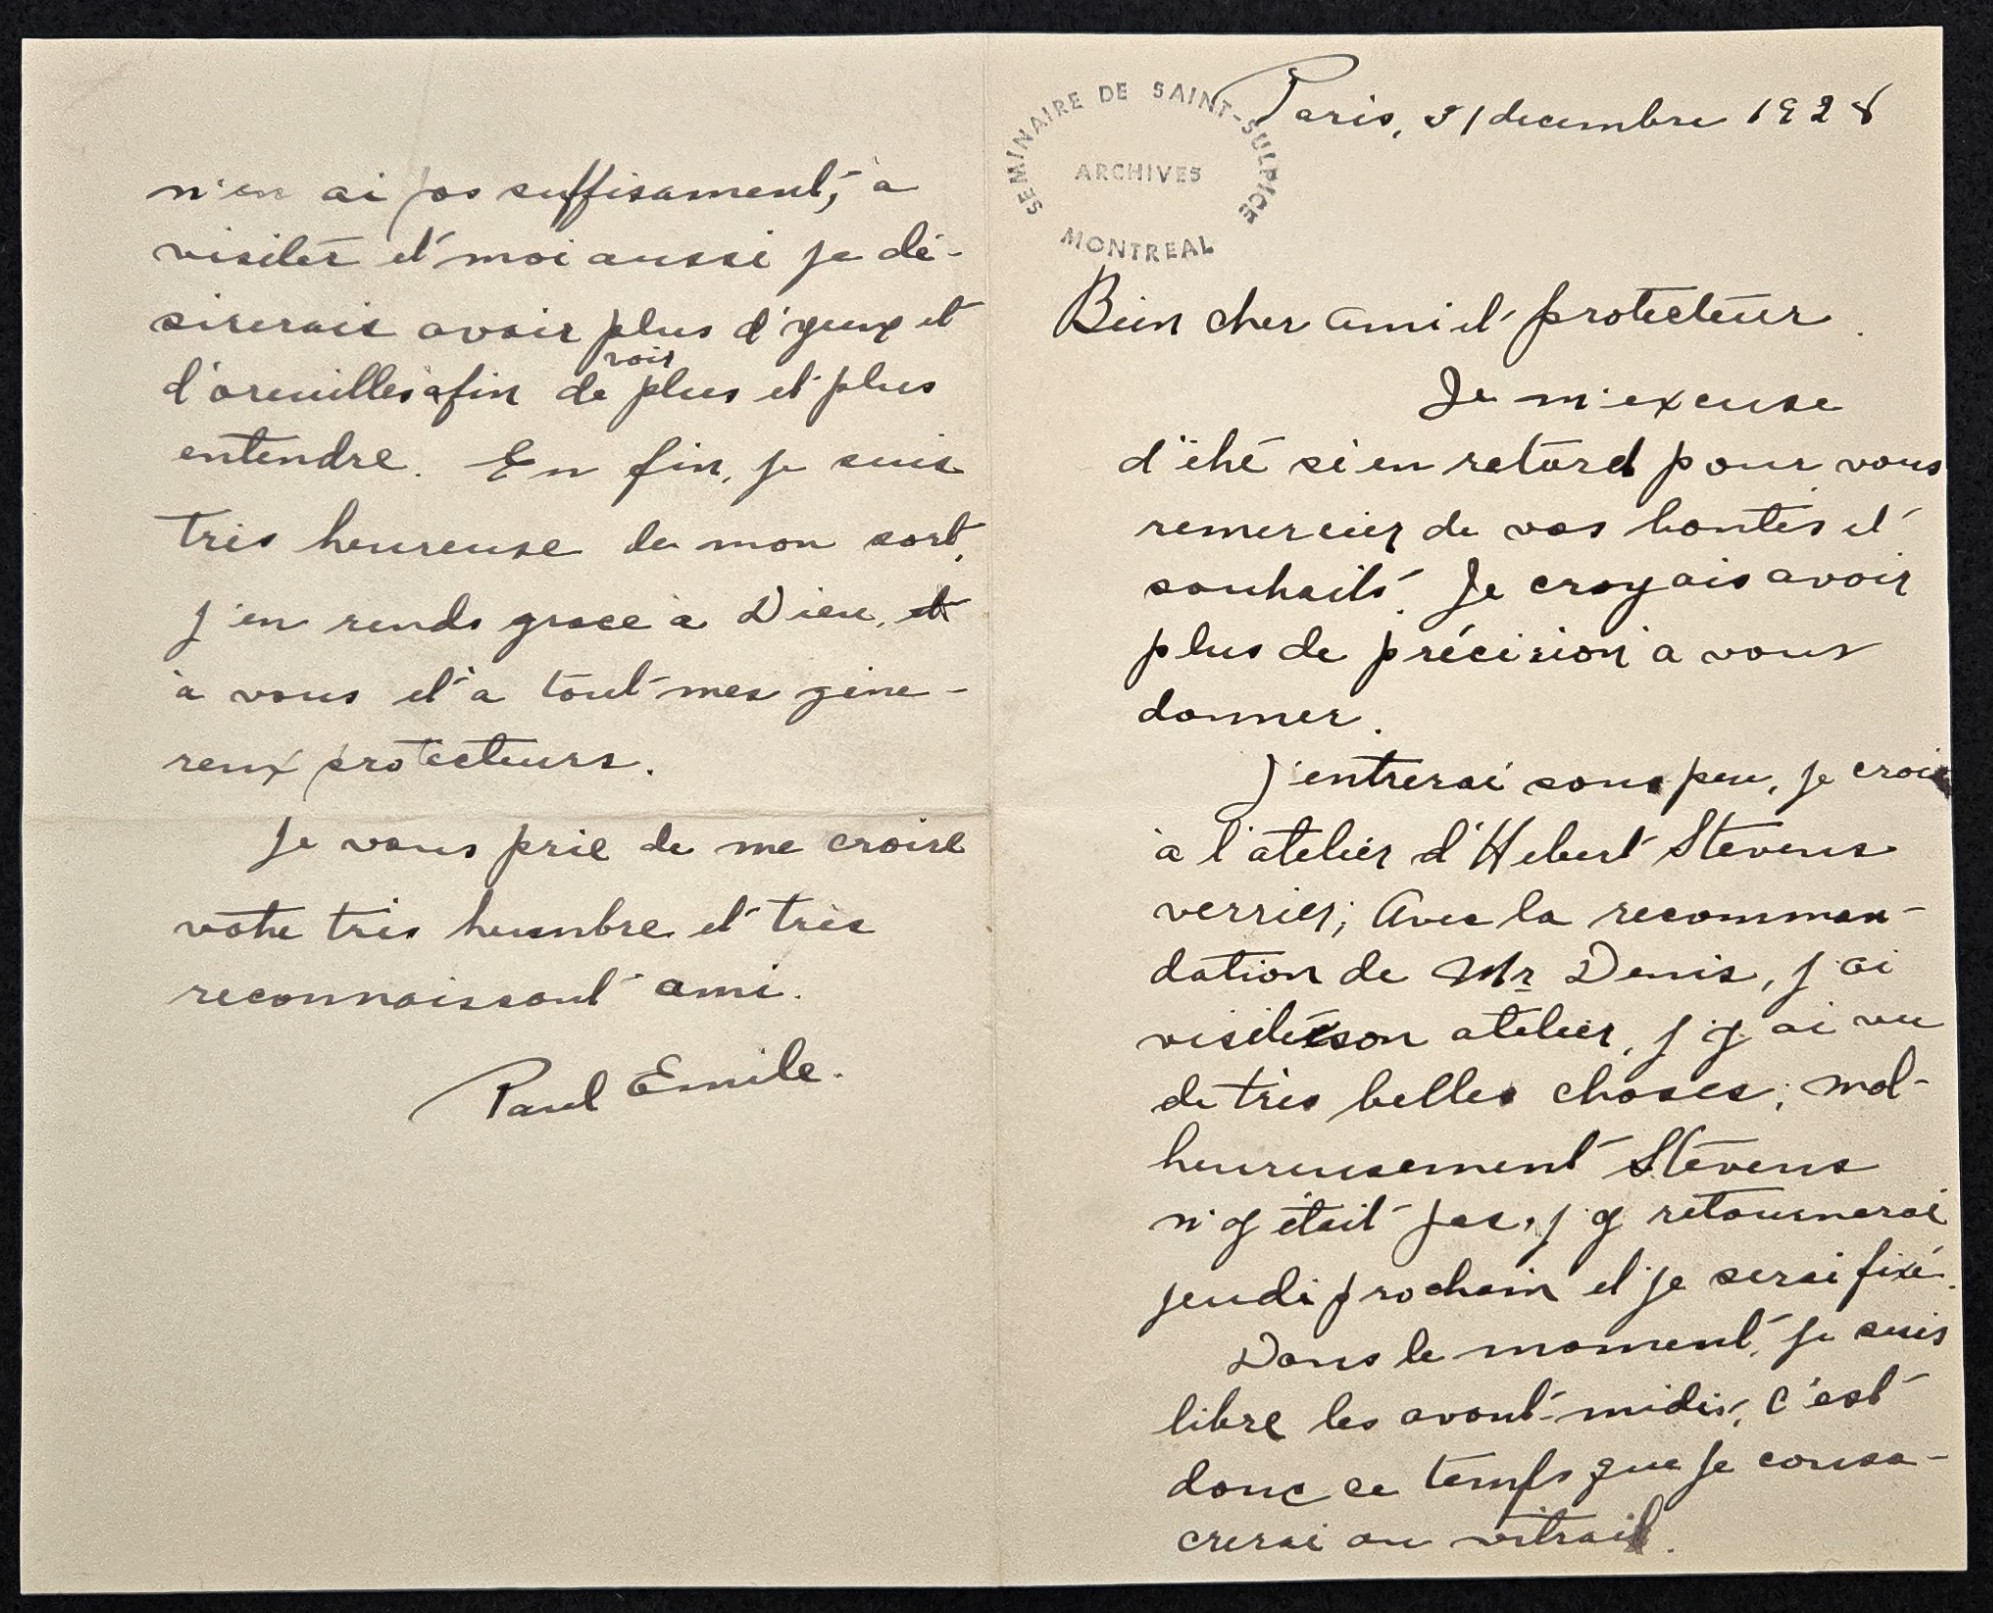 Paris, 31 decembre 1928
SEMINAIRE DE SAINT-SULPICE
ARCHIVES
MONTREAL
Bien cher ami et protecteur.
Je m'excuse
d'été si en retard pour vous
remercier de vos bontés et
souhaits. Je croyais avoir
plus de précision à vous
donner.
J'entrerai sous peu, je crois
à l'atelier d'Hebert Stevens
verrier; Avec la recomman-
dation de Mr Denis, j'ai
visité son atelier, j'y ai vu
de très belles choses; mal-
heureusement Stevens
n'y était pas, j'y retournerai
jeudi prochain et je serai fixé.
Dans le moment, je suis
libre les avant-midis, c'est
donc ce temps que je consa-
crerai au vitrail.
n'en ai pas suffisament, à
visiter et moi aussi je dé-
sirerais avoir plus d'yeux et
d'oreuilles afin de voir plus et plus
entendre. En fin, je suis
très heureuse de mon sort,
j'en rends grace à Dieu, et
à vous et à tout mes géné-
reux protecteurs.
Je vous prie de me croire
votre très humbre et très
reconnaissant ami.
Paul Emile.